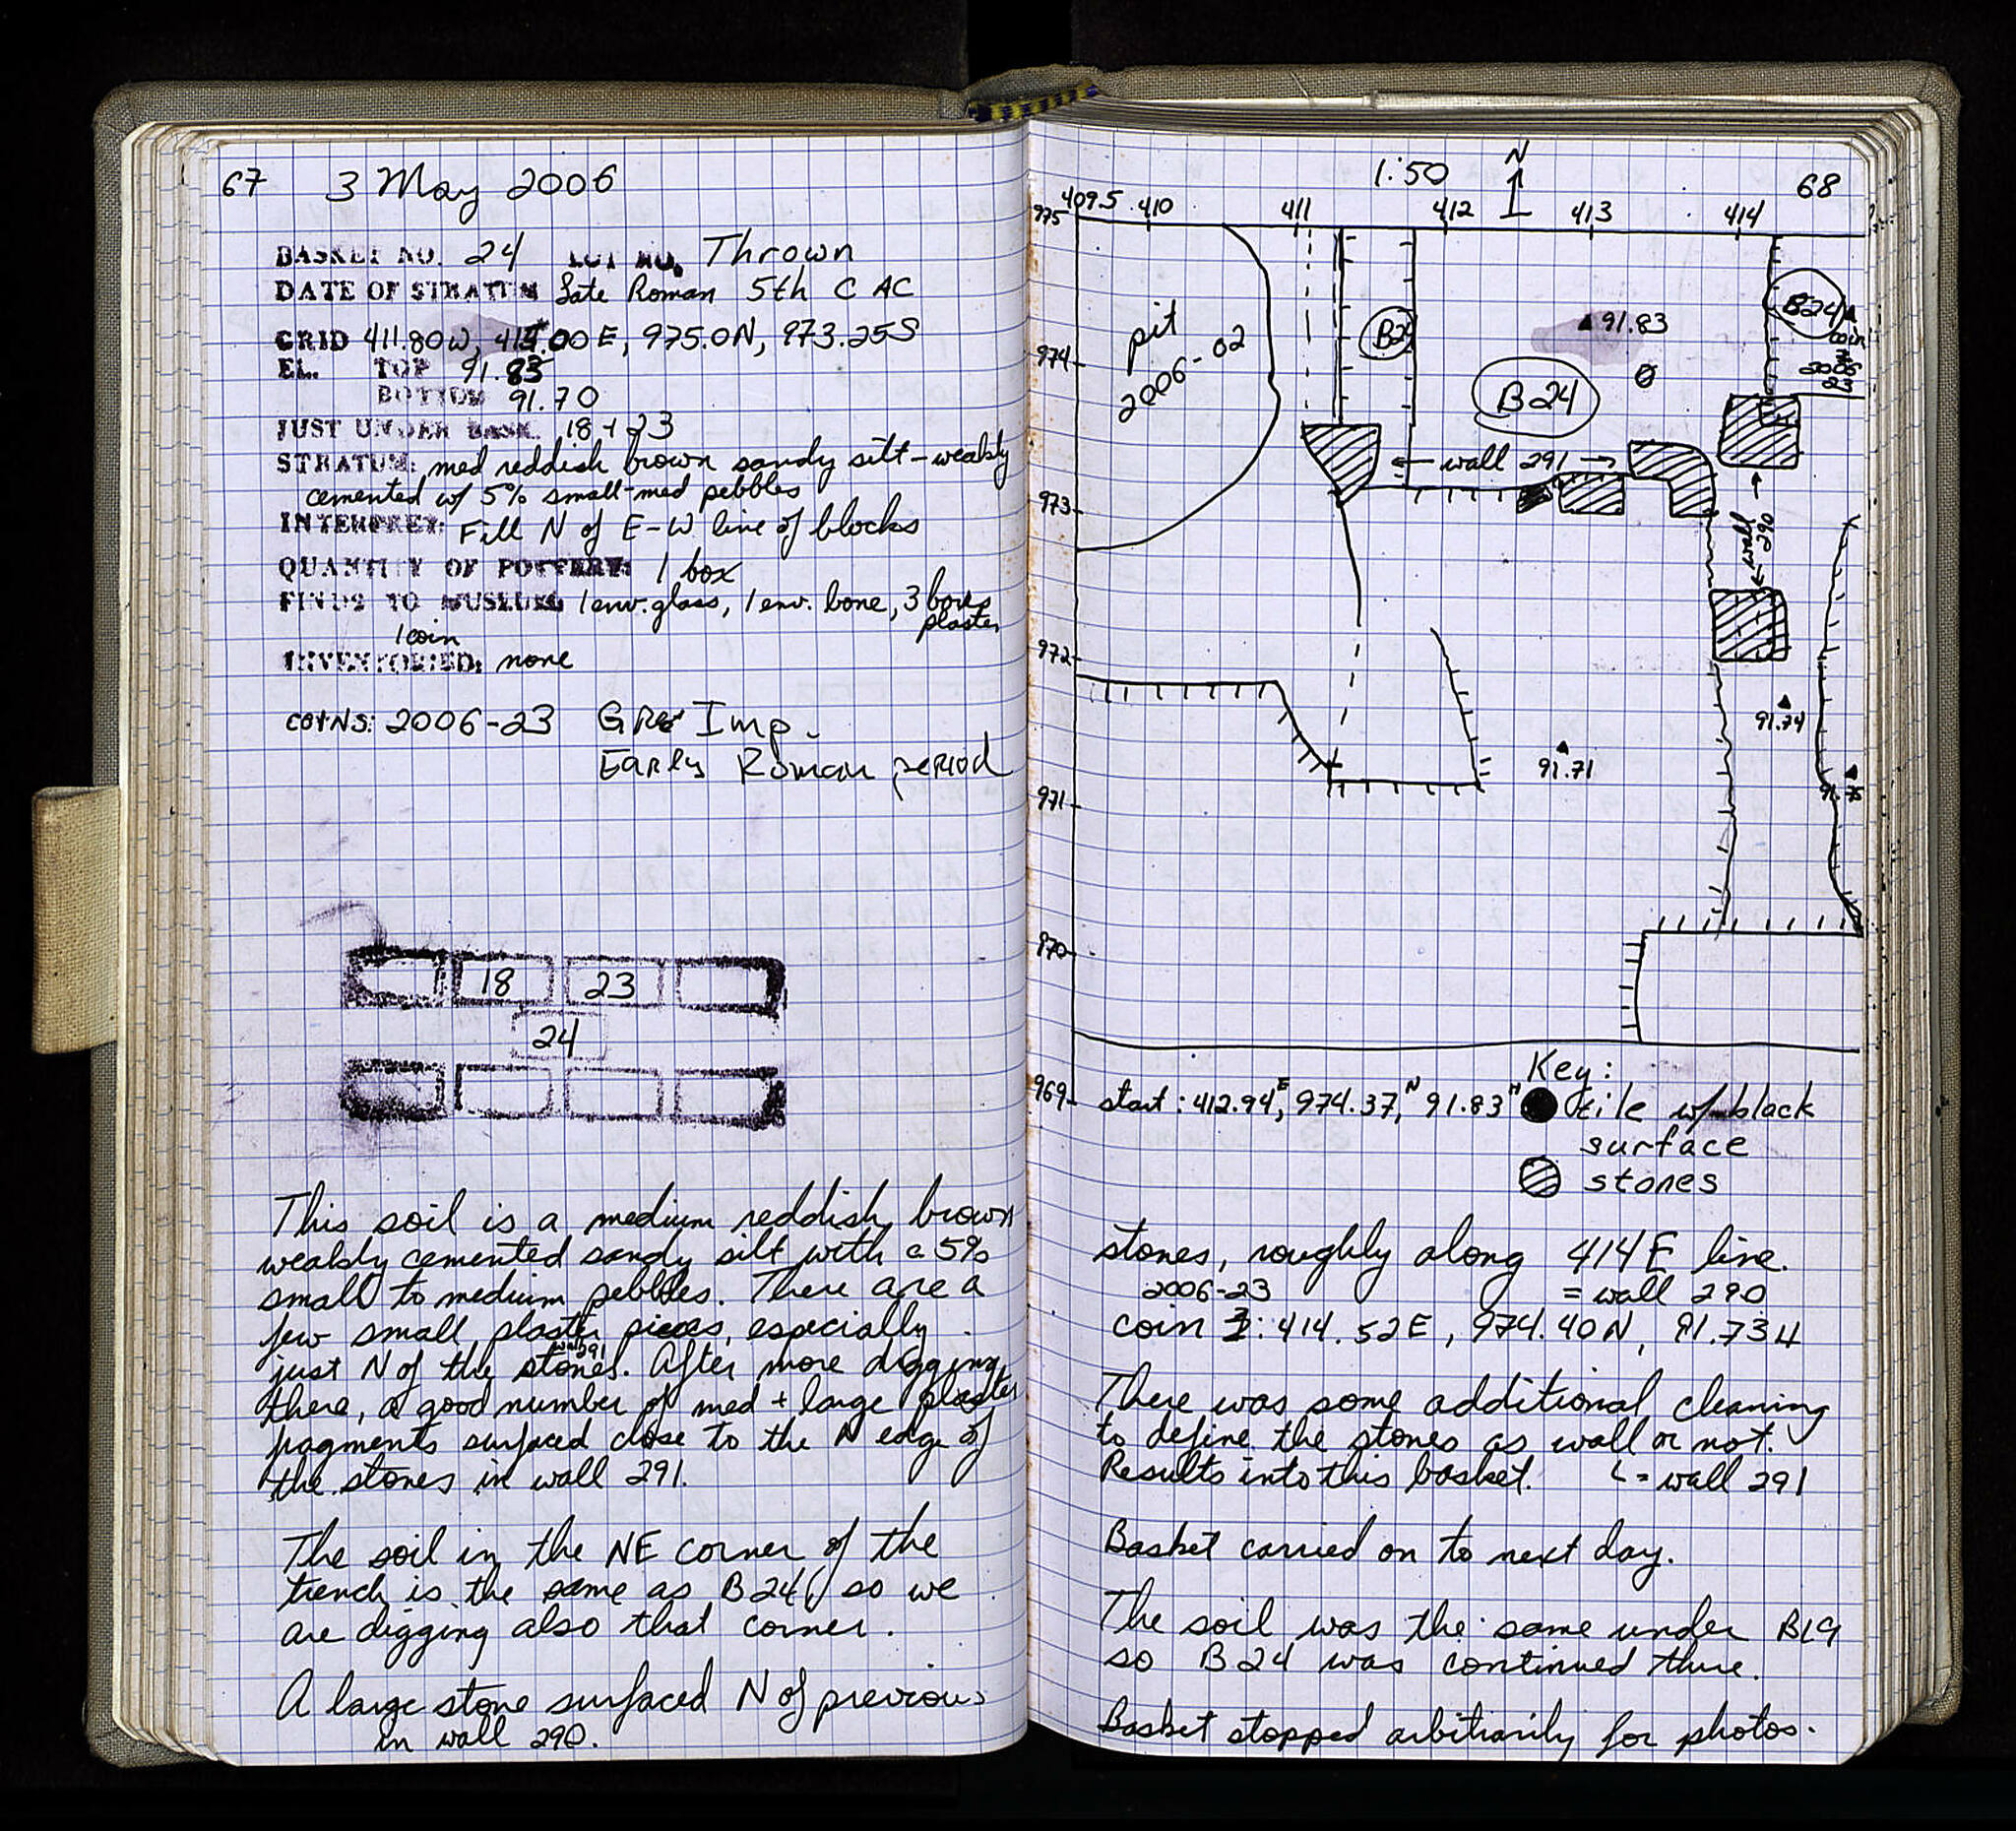 67 3 May 2006
BASKET NO. 24 LOT NO. Thrown
DATE OF STRATUM Late Roman 5th C AC
GRID 411.80W, 414.00E, 975.0N, 973.25S
EL. TOP 91.83
BOTTOM 91.70
JUST UNDER BASK. 18 + 23
STRATUM: med reddish brown sandy silt - weakly
cemented w/ 5% small-med pebbles
INTERPRET: Fill N of E-W line of blocks
QUANTITY OF POTTERY: 1 box
FINDS TO MUSEUM: 1 env. glass, 1 env. bone, 3 boxes
plaster
1 coin
INVENTORIED: none
COINS: 2006-23 GRe Imp.
Early Roman period
18 23
24
This soil is a medium reddish brown
weakly cemented sandy silt with c 5%
small to medium pebbles. There are a
few small plaster pieces, especially
wall 291
just N of the stones. After more digging
there, a good number of med + large plaster
fragments surfaced close to the N edge of
the stones in wall 291.
The soil in the NE corner of the
trench is the same as B24, so we
are digging also that corner.
A large stone surfaced N of previous
in wall 290.
1:50 N 68
409.5 410 411 412 413 414
975
974
973
972
971
970
969
pit
2006-02
B24
91.83
B24
B24
coin
2006
23
wall 291
wall
290
91.74
91.71
91.75
Key:
start: 412.94E, 974.37N, 91.83H
tile w/ black
surface
stones
stones, roughly along 414E line.
2006-23 = wall 290
coin : 414.52E, 974.40N, 91.73H
There was some additional cleaning
to define the stones as wall or not.
Results into this basket. = wall 291
Basket carried on to next day.
The soil was the same under B19
so B24 was continued there.
Basket stopped arbitrarily for photos.